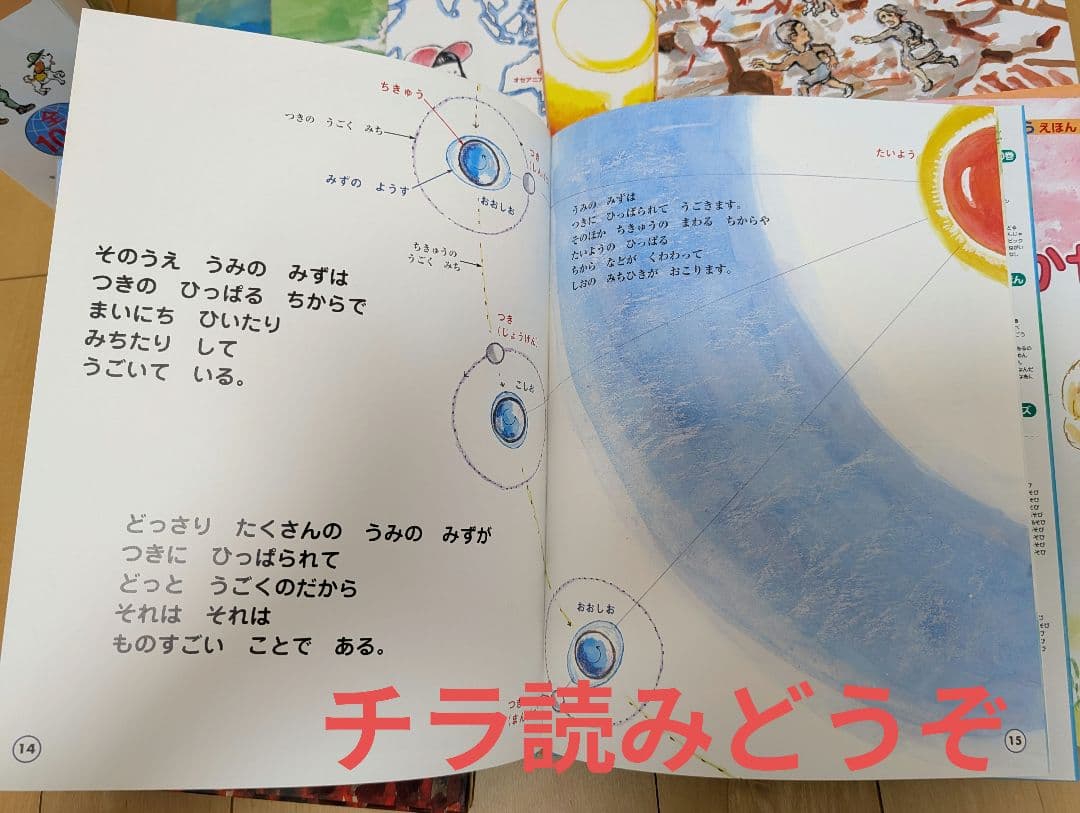 そのうえ　うみの　みずは
つきの　ひっぱる　ちからで
まいにち　ひいたり
みちたり　して
うごいて　いる。
どっさり　たくさんの　うみの　みずが
つきに　ひっぱられて
どっと　うごくのだから
それは　それは
ものすごい　ことで　ある。
14
ちきゅう
つきの　うごく　みち
みずの　ようす
おおしお
つき
ちきゅうの
うごく　みち
つき
(じょうげん
こしお
おおしお
つき
たいよう
うみの　みずは
つきに　ひっぱられて　うごきます。
そのほか　ちきゅうの　まわる　ちからや
たいようの　ひっぱる
ちから　などが　くわわって
しおの　みちひきが　おこります。
15
オセアニア
えほん
チラ読みどうぞ